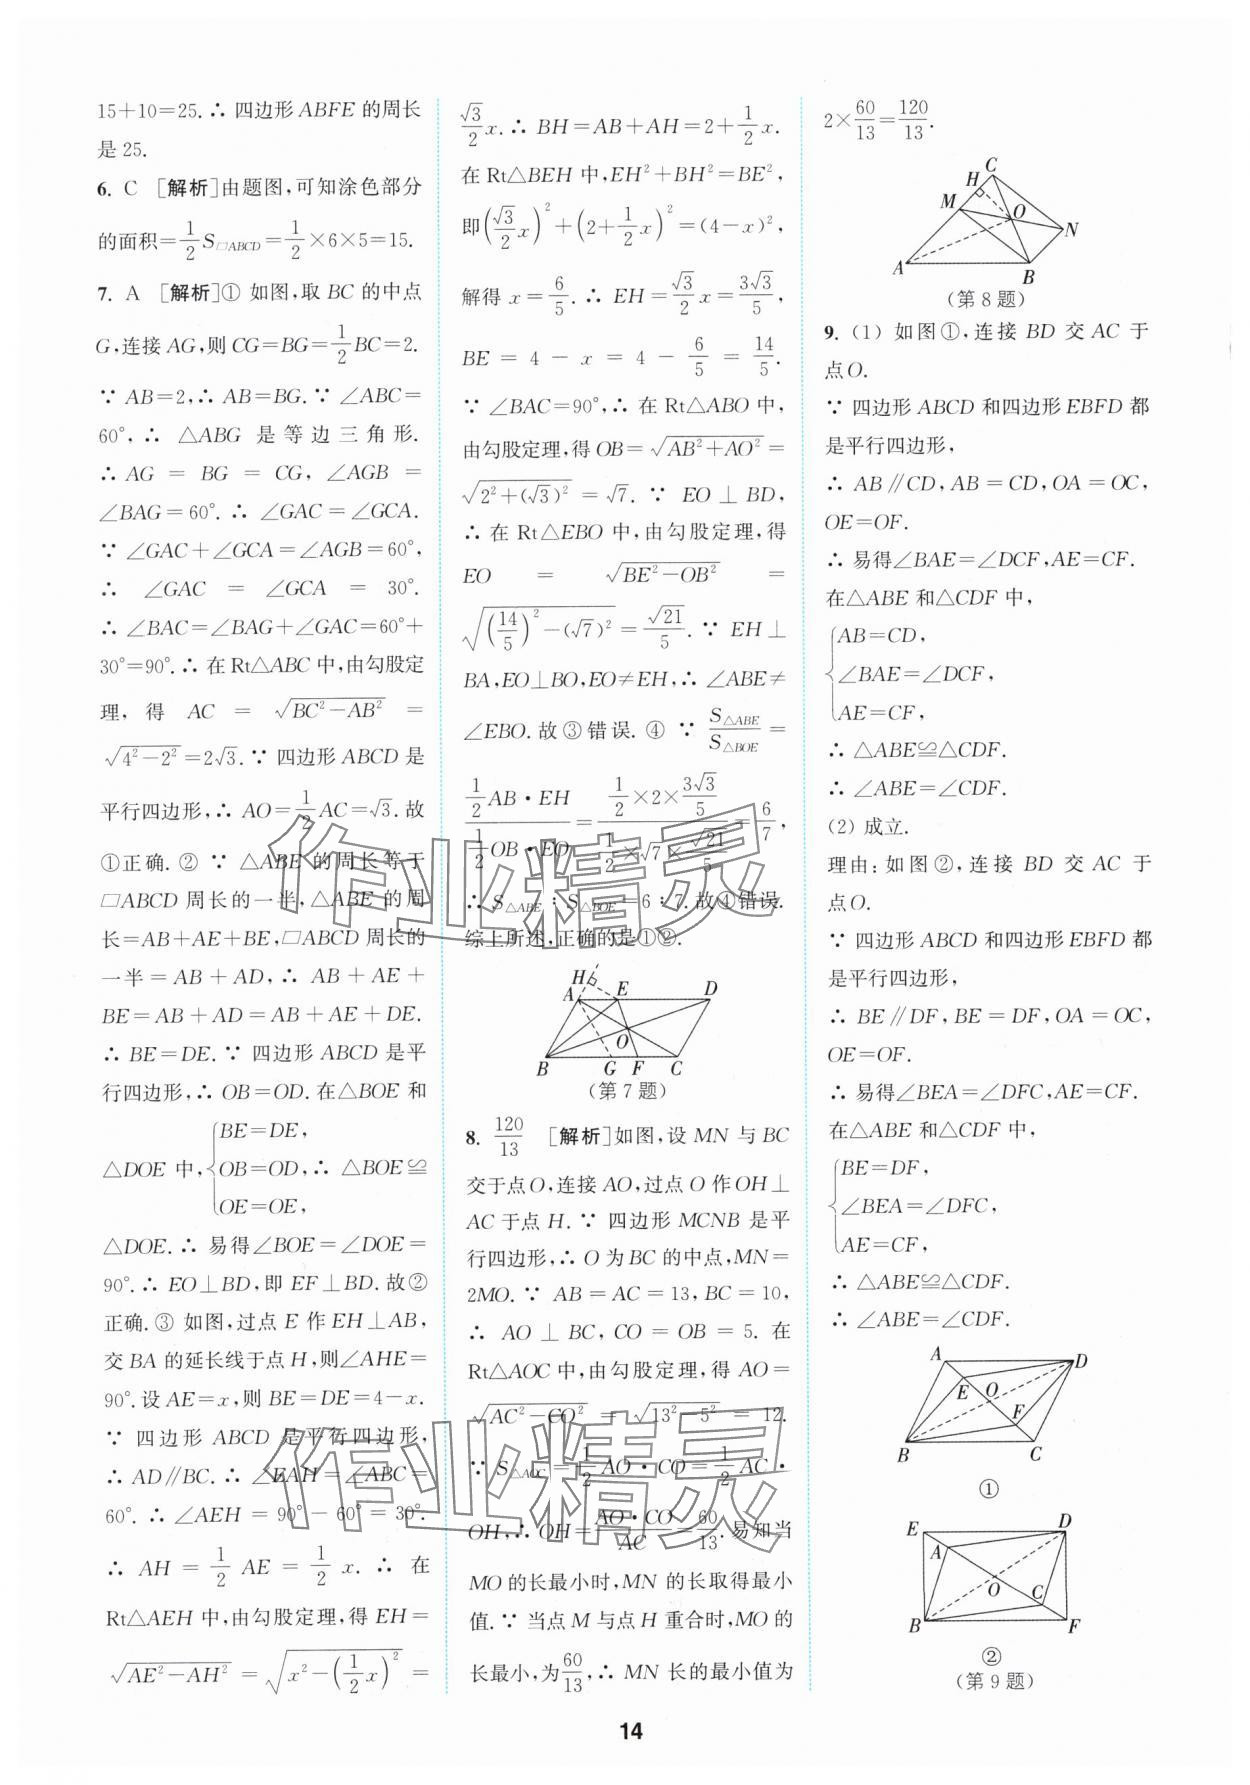 15+10=25.∴ 四边形 ABFE 的周长
是 25.
6. C [解析]由题图,可知涂色部分
的面积=1/2 S▱ABCD=1/2×6×5=15.
7. A [解析]① 如图,取 BC 的中点
G,连接 AG,则 CG=BG=1/2 BC=2.
∵ AB=2,∴ AB=BG.∵ ∠ABC=
60°,∴ △ABG 是等边三角形.
∴ AG = BG = CG, ∠AGB =
∠BAG=60°.∴ ∠GAC=∠GCA.
∵ ∠GAC+∠GCA=∠AGB=60°,
∴ ∠GAC = ∠GCA = 30°.
∴ ∠BAC=∠BAG+∠GAC=60°+
30°=90°.∴ 在 Rt△ABC 中,由勾股定
理,得 AC = √(BC²-AB²) =
√(4²-2²)=2√3.∵ 四边形 ABCD 是
平行四边形,∴ AO=1/2 AC=√3.故
①正确.② ∵ △ABE 的周长等于
▱ABCD 周长的一半,△ABE 的周
长=AB+AE+BE,▱ABCD 周长的
一半 = AB + AD,∴ AB + AE +
BE=AB+AD=AB+AE+DE.
∴ BE=DE.∵ 四边形 ABCD 是平
行四边形,∴ OB=OD.在△BOE 和
△DOE 中,{BE=DE,
OB=OD,∴ △BOE≌
OE=OE,
△DOE.∴ 易得∠BOE=∠DOE=
90°.∴ EO⊥BD,即 EF⊥BD.故②
正确.③ 如图,过点 E 作 EH⊥AB,
交 BA 的延长线于点 H,则∠AHE=
90°.设 AE=x,则 BE=DE=4-x.
∵ 四边形 ABCD 是平行四边形,
∴ AD∥BC.∴ ∠EAH=∠ABC=
60°.∴ ∠AEH = 90°- 60° = 30°.
∴ AH = 1/2 AE = 1/2 x.∴ 在
Rt△AEH 中,由勾股定理,得 EH=
√(AE²-AH²) = √(x²-(1/2 x)²) =
√3/2 x.∴ BH=AB+AH=2+1/2 x.
在 Rt△BEH 中,EH²+BH²=BE²,
即(√3/2 x)²+(2+1/2 x)²=(4-x)²,
解得 x=6/5.∴ EH=√3/2 x=3√3/5,
BE = 4 - x = 4 - 6/5 = 14/5.
∵ ∠BAC=90°,∴ 在 Rt△ABO 中,
由勾股定理,得 OB=√(AB²+AO²)=
√(2²+(√3)²)=√7.∵ EO⊥BD,
∴ 在 Rt△EBO 中,由勾股定理,得
EO = √(BE²-OB²) =
√((14/5)²-(√7)²)=√21/5.∵ EH⊥
BA,EO⊥BO,EO≠EH,∴ ∠ABE≠
∠EBO.故③错误.④ ∵ S△ABE/S△BOE=
(1/2 AB·EH)/(1/2 OB·EO)=(1/2×2×3√3/5)/(1/2×√7×√21/5)=6/7,
∴ S△ABE:S△BOE=6:7.故④错误.
综上所述,正确的是①②.
H
A E D
O
B G F C
(第 7 题)
8. 120/13 [解析]如图,设 MN 与 BC
交于点 O,连接 AO,过点 O 作 OH⊥
AC 于点 H.∵ 四边形 MCNB 是平
行四边形,∴ O 为 BC 的中点,MN=
2MO.∵ AB=AC=13,BC=10,
∴ AO⊥BC,CO=OB=5.在
Rt△AOC 中,由勾股定理,得 AO=
√(AC²-CO²) = √(13²-5²) = 12.
∵ S△AOC=1/2 AO·CO=1/2 AC·
OH,∴ OH=AO·CO/AC=60/13.易知当
MO 的长最小时,MN 的长取得最小
值.∵ 当点 M 与点 H 重合时,MO 的
长最小,为60/13,∴ MN 长的最小值为
2×60/13=120/13.
C
H
M O
N
A B
(第 8 题)
9. (1) 如图①,连接 BD 交 AC 于
点 O.
∵ 四边形 ABCD 和四边形 EBFD 都
是平行四边形,
∴ AB∥CD,AB=CD,OA=OC,
OE=OF.
∴ 易得∠BAE=∠DCF,AE=CF.
在△ABE 和△CDF 中,
{AB=CD,
∠BAE=∠DCF,
AE=CF,
∴ △ABE≌△CDF.
∴ ∠ABE=∠CDF.
(2) 成立.
理由:如图②,连接 BD 交 AC 于
点 O.
∵ 四边形 ABCD 和四边形 EBFD 都
是平行四边形,
∴ BE∥DF,BE=DF,OA=OC,
OE=OF.
∴ 易得∠BEA=∠DFC,AE=CF.
在△ABE 和△CDF 中,
{BE=DF,
∠BEA=∠DFC,
AE=CF,
∴ △ABE≌△CDF.
∴ ∠ABE=∠CDF.
A D
E O
F
B C
①
E D
A
O
C
B F
②
(第 9 题)
作业精灵
作业精灵
14